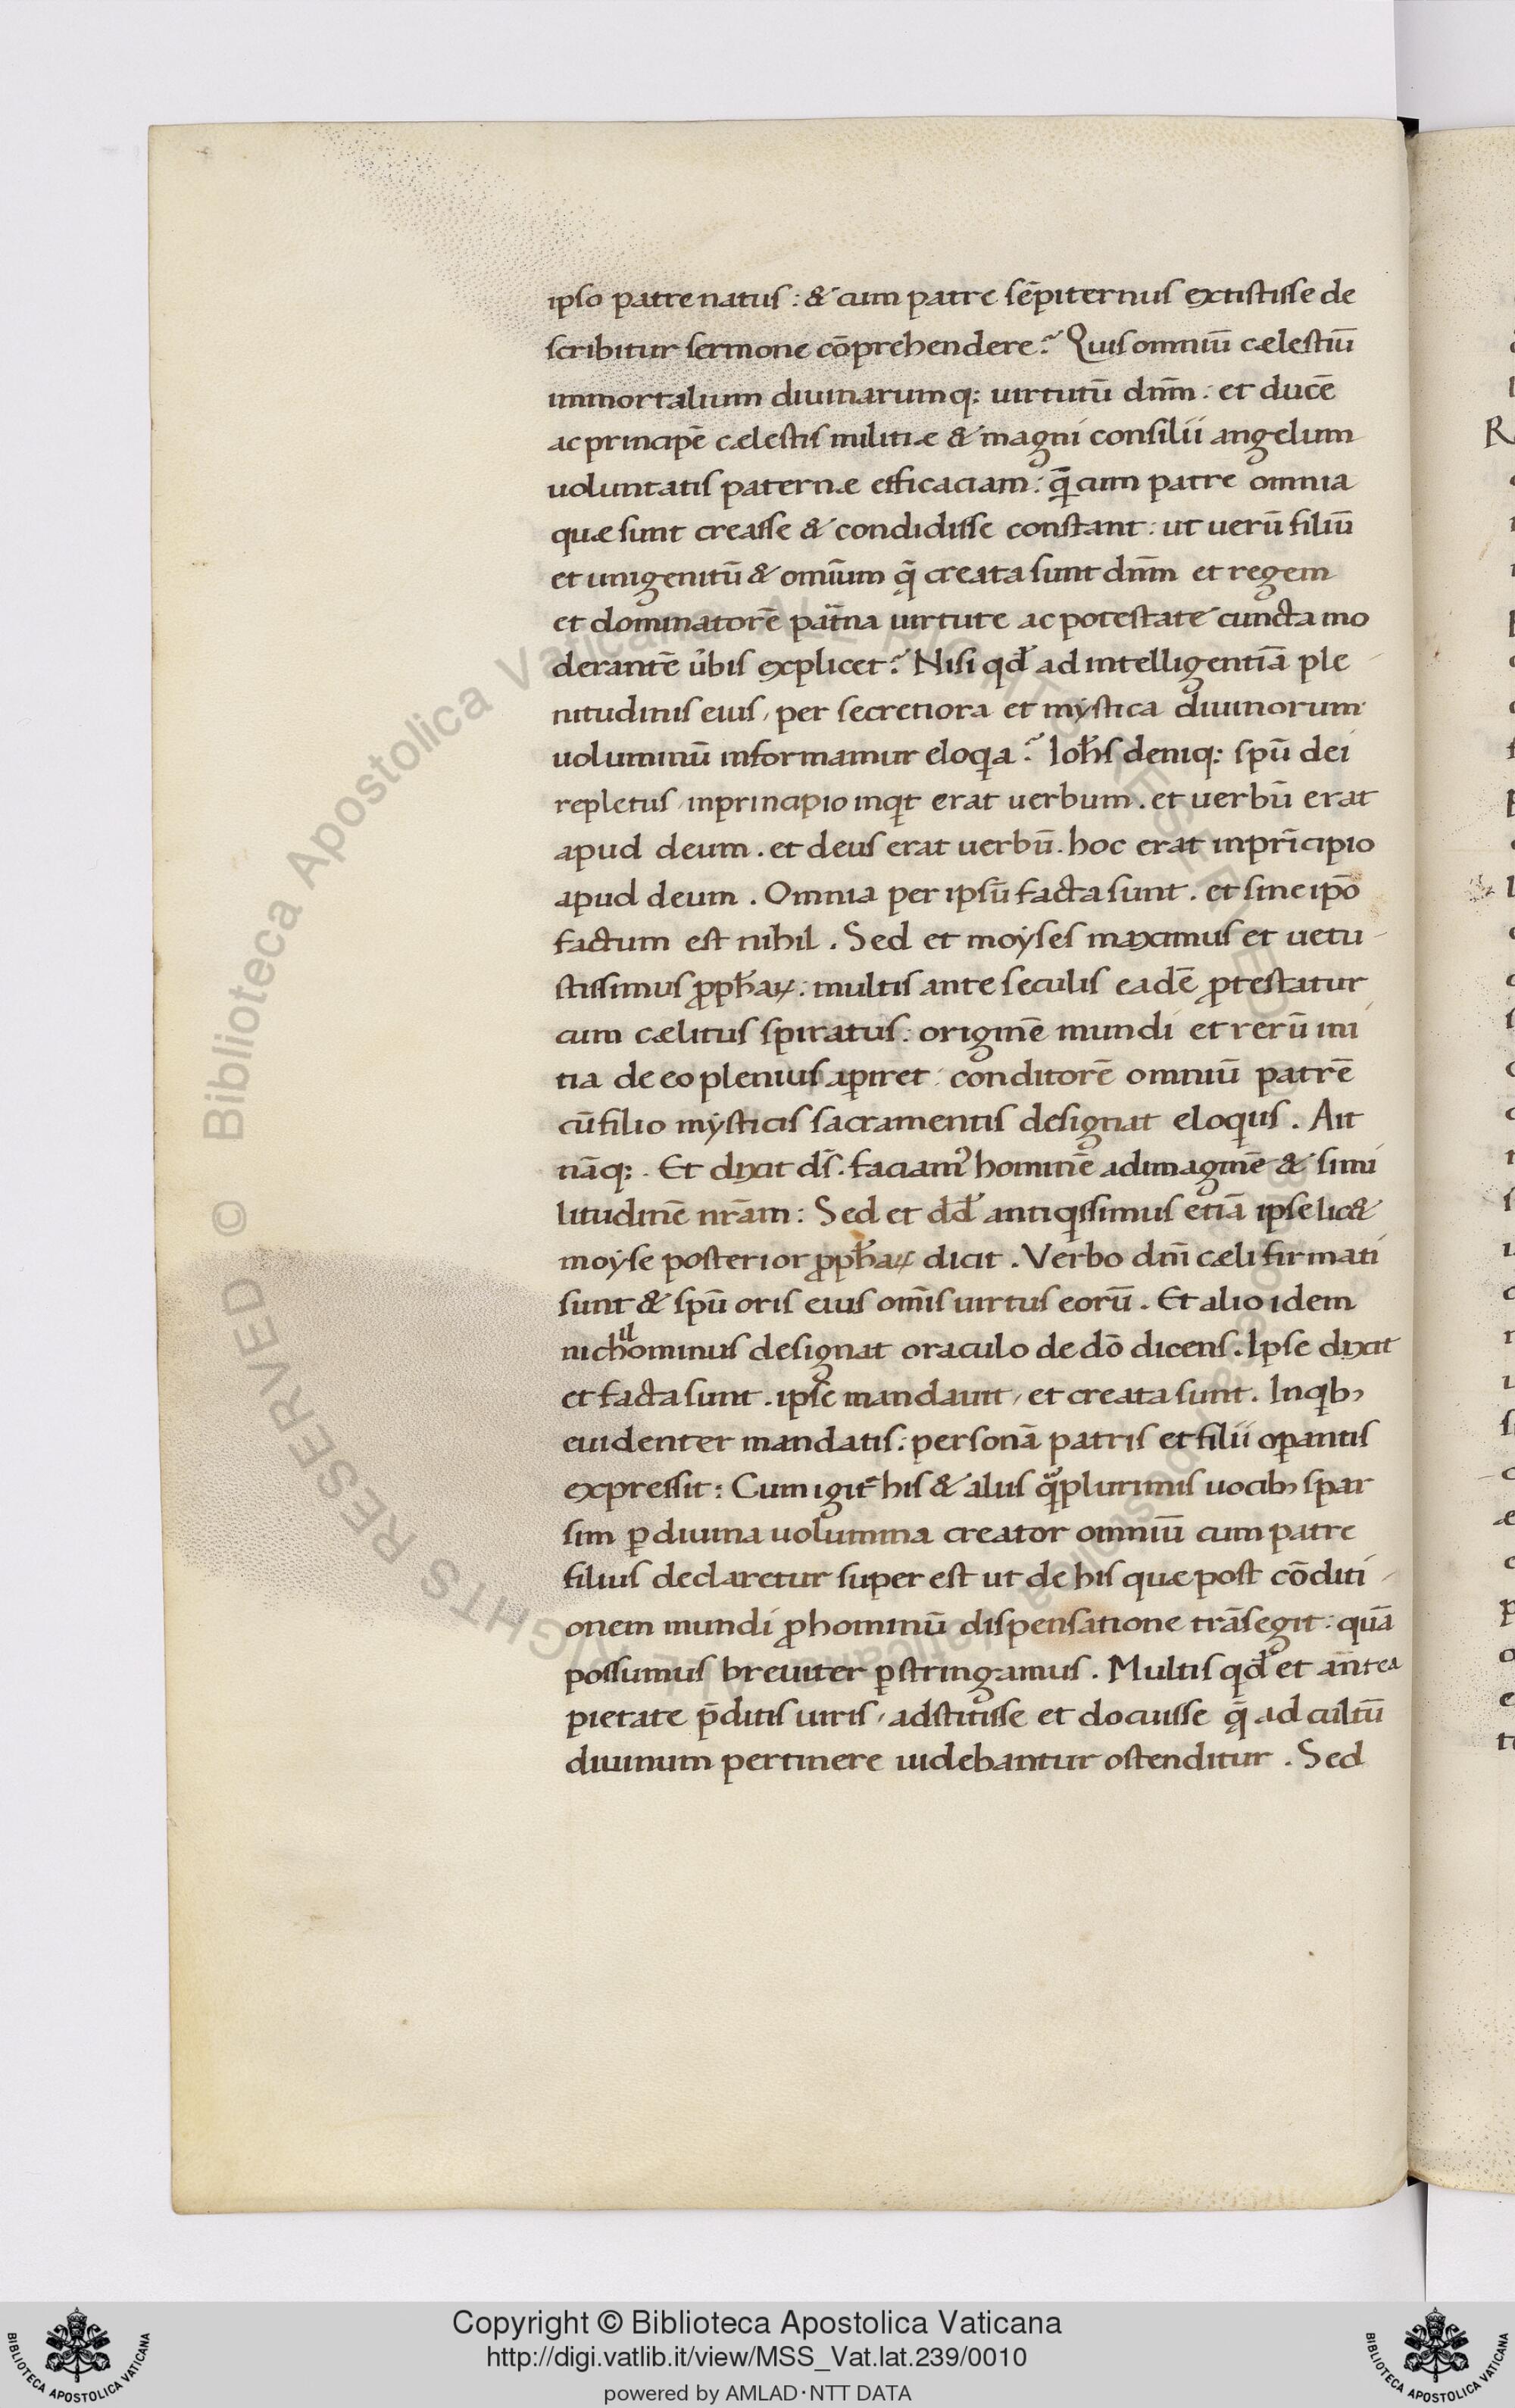 ipso patre natus: & cum patre sēpiternus extistisse de
scribitur sermone cōprehendere? Quis omniū cælestiū
immortalium diuinarumq: uirtutū dn̄m: et ducē
ac principē cælestis militiæ & magni consilii angelum
uoluntatis paternæ efficaciam: q̄ cum patre omnia
quæ sunt creasse & condidisse constant: ut uerū filiū
et unigenitū & omīum q̄ creata sunt dn̄m et regem
et dominatorē pat̄na uirtute ac potestate cuncta mo
derantē u̓bis explicet? Nisi qd̓ ad intelligentiā ple
nitudinis eius, per secretiora et mystica diuinorum
uoluminū informamur eloqia? Ioh̓s deniq: spū dei
repletus, inprincipio inqt erat uerbum. et uerbū erat
apud deum. et deus erat uerbū. hoc erat inprīcipio
apud deum. Omnia per ipsū facta sunt. et sine ipō
factum est nihil. Sed et moyses maximus et uetu
stissimus ꝓph̓aꝝ: multis ante seculis eadē ꝓtestatur
cum cælitus spiratus: originē mundi et rerū ini
tia de eo plenius aꝑiret: conditorē omniū patrē
cū filio mysticis sacramentis designat eloqiis. Ait
nāq: . Et dixit ds̄. faciam᾽ hominē adimaginē & simi
litudinē nr̄am: Sed et dd̓ antiqissimus etiā ipse lic&
moyse posterior ꝓph̓aꝝ dicit. Verbo dn̄i cæli firmati
sunt & spū oris eius omīs uirtus eorū. Et alio idem
nichilominus designat oraculo de dō dicens. Ipse dixit
et facta sunt. ipse mandauit, et creata sunt. Inqib;
euidenter mandatis: personā patris et filii oꝑantis
expressit: Cum igit̓ his & aliis qͣplurimis uocib; spar
sim ꝑ diuina uolumina creator omniū cum patre
filius declaretur super est ut de his quæ post cōditi
onem mundi ꝓ hominū dispensatione trāsegit: quā
possumus breuiter ꝑstringamus. Multis qd̓ et ān tea
pietate p̄ditis uiris, adstitisse et docuisse q̄ ad cultū
diuinum pertinere uidebantur ostenditur. Sed
Copyright © Biblioteca Apostolica Vaticana
http://digi.vatlib.it/view/MSS_Vat.lat.239/0010
powered by AMLAD·NTT DATA